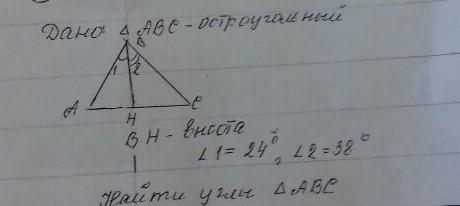 Дано: Δ ABC - остроугольный
B
1 2
A H C
BH - высота
∠1 = 24°, ∠2 = 38°
Найти углы ΔABC